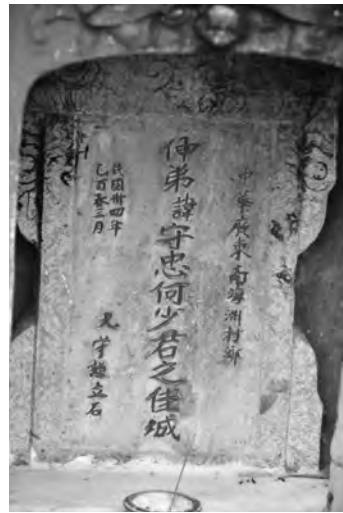 中華廣東南海洲村鄉
仲弟諱守忠何少君之佳城
民國卅四年
乙酉春三月
兄守謹立石